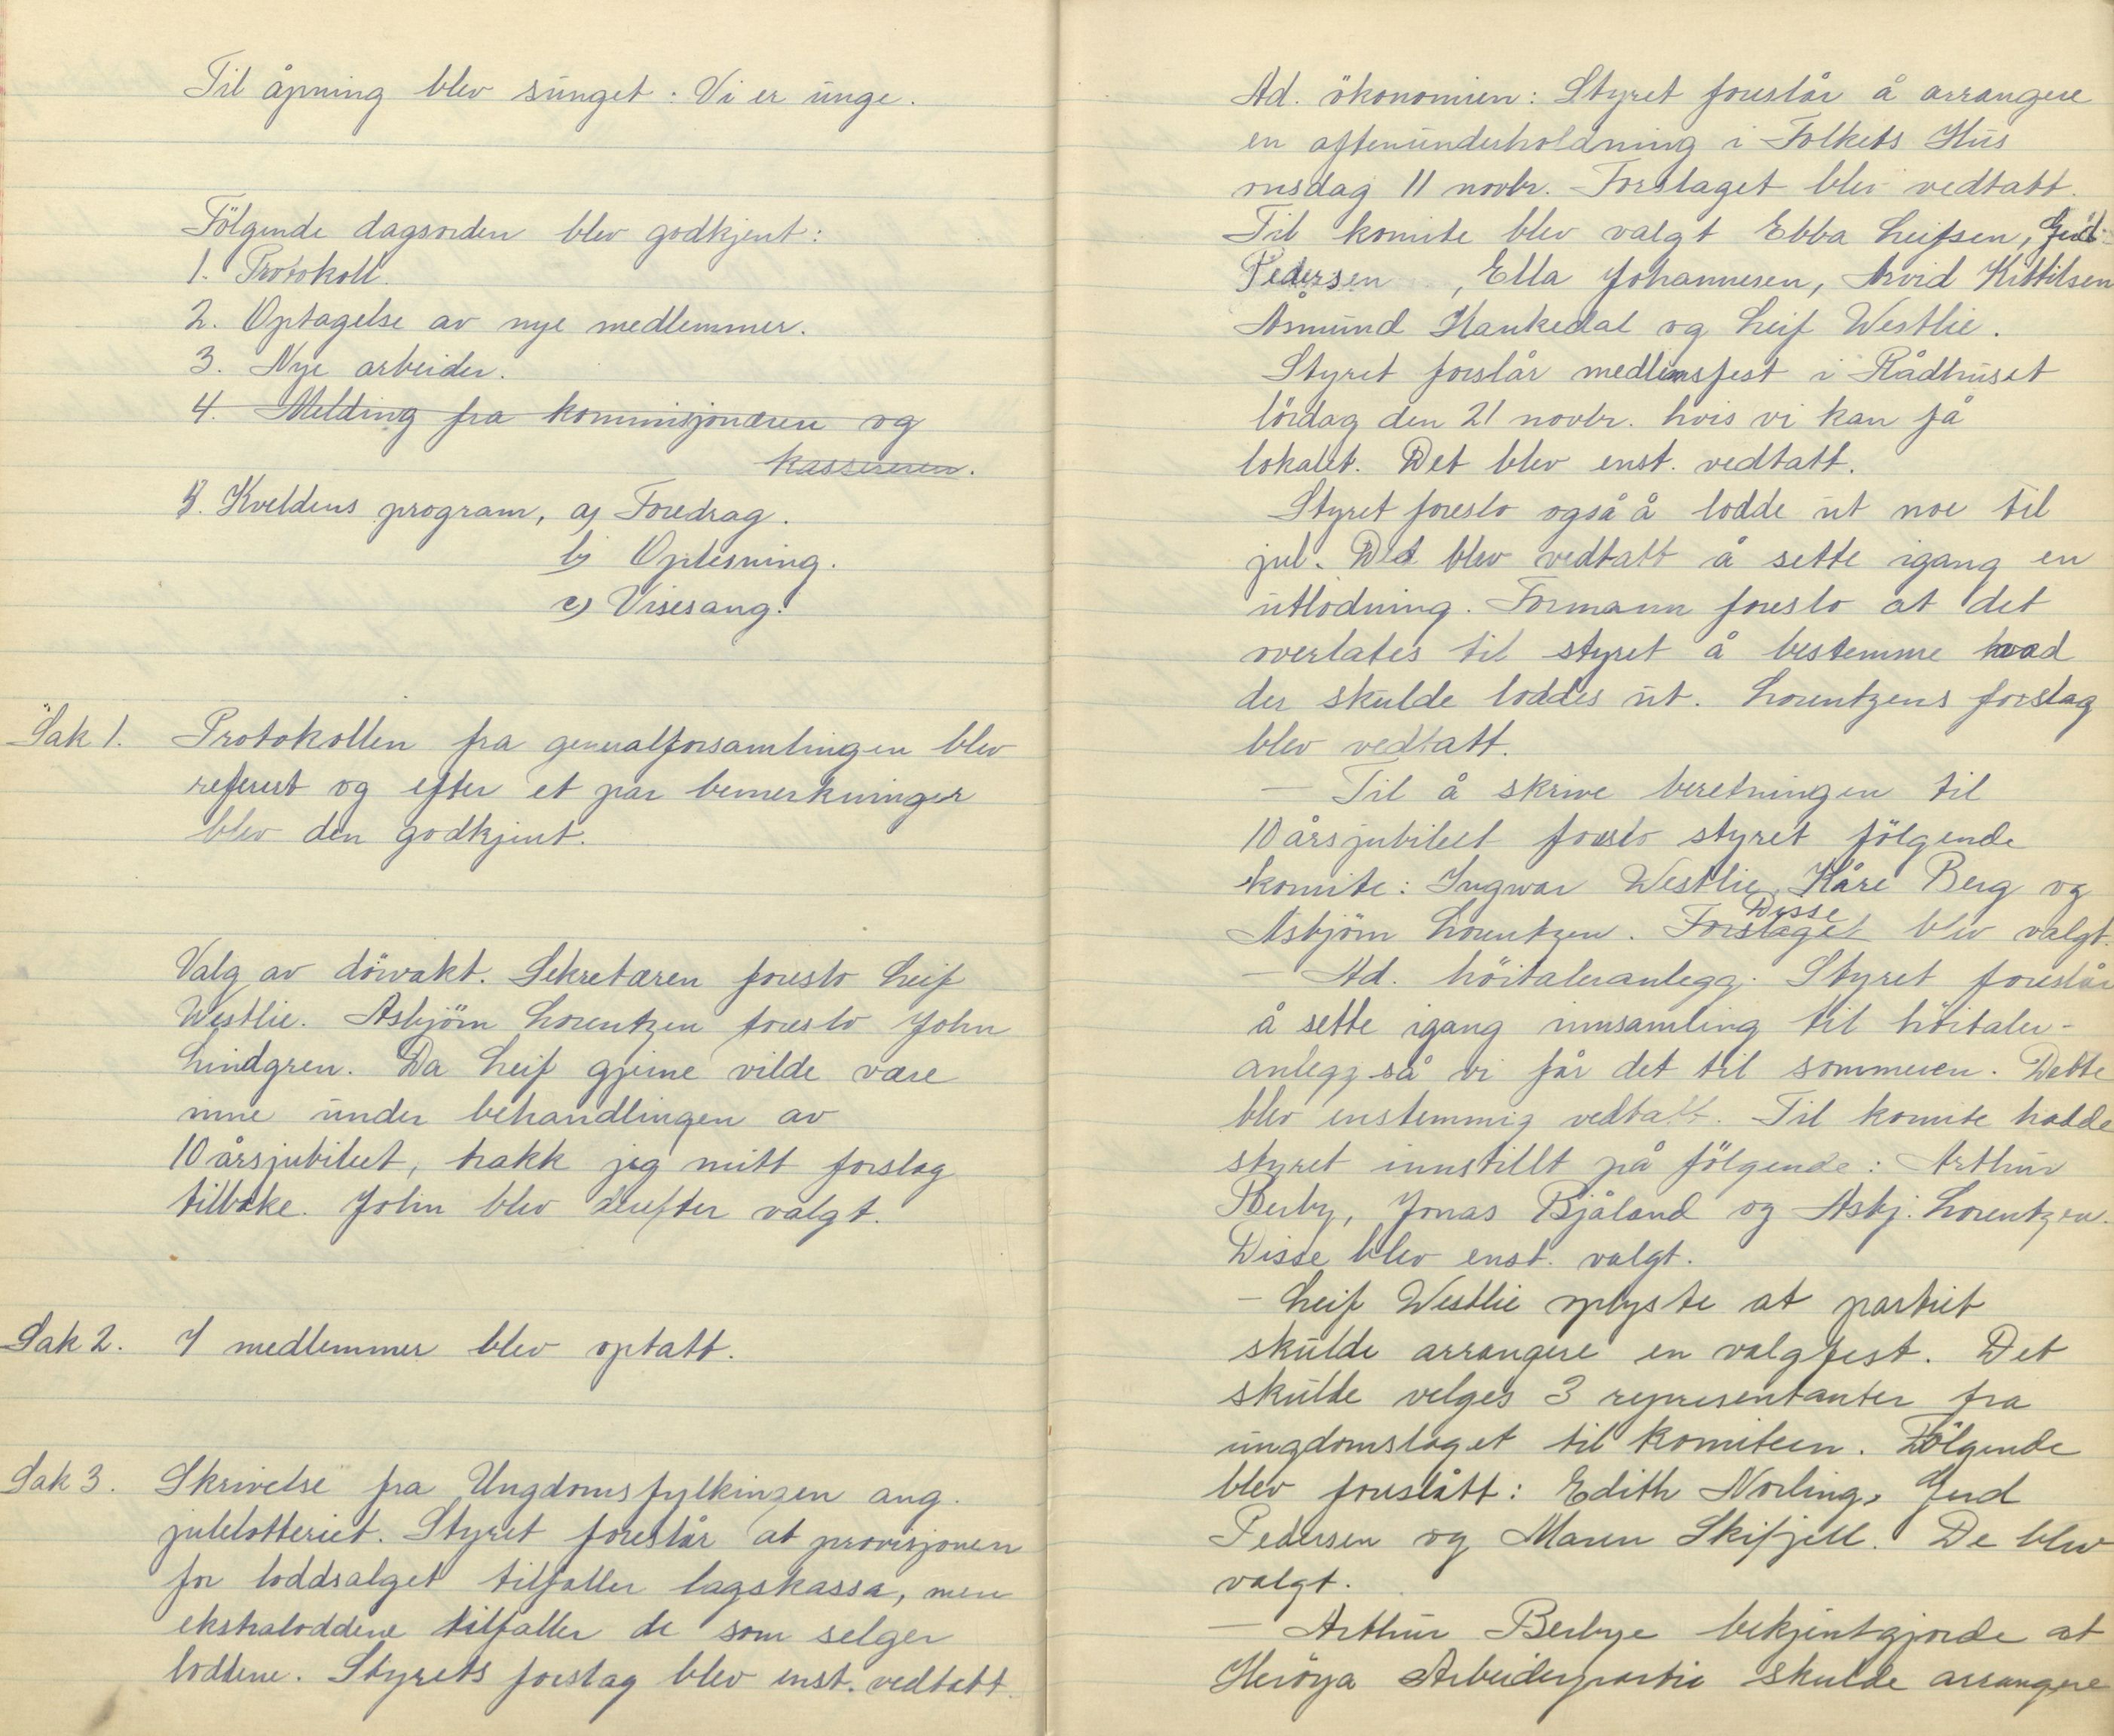 Til åpning blev sunget: Vi er unge.
Følgende dagsorden blev godkjent:
1. Protokoll.
2. Optagelse av nye medlemmer.
3. Nye arbeider.
4. Melding fra kommisjonæren og
kassereren.
4. Kveldens program, a) Foredrag.
b) Oplesning.
c) Visesang.
Sak 1. Protokollen fra generalforsamlingen blev
referert og efter et par bemerkninger
blev den godkjent.
Valg av dörvakt. Sekretæren foreslo Leif
Westlie. Asbjörn Lorentzen foreslo John
Lindgren. Da Leif gjerne vilde være
inne under behandlingen av
10 årsjubileet, trakk jeg mitt forslag
tilbake. John blev derefter valgt.
Sak 2. 7 medlemmer blev optatt.
Sak 3. Skrivelse fra Ungdomsfylkingen ang.
julelotteriet. Styret foreslår at provisjonen
for loddsalget tilfaller lagskassa, men
ekstraloddene tilfaller de som selger
loddene. Styrets forslag blev enst. vedtatt.
Ad. ökonomien: Styret foreslår å arrangere
en aftenunderholdning i Folkets Hus
onsdag 11 novbr. Forslaget blev vedtatt.
Til komite blev valgt Ebba Leifsen, Gerd
Pedersen, Ella Johannesen, Arvid Kittilsen
Åsmund Haukedal og Leif Westlie.
Styret forslår medlemsfest i Rådhuset
lördag den 21 novbr. hvis vi kan få
lokalet. Det blev enst. vedtatt.
Styret foreslo også å lodde ut noe til
jul. Det blev vedtatt å sette igang en
utlodning. Formann foreslo at det
overlates til styret å bestemme hvad
der skulde loddes ut. Lorentzens forslag
blev vedtatt.
— Til å skrive beretningen til
10 årsjubileet foreslo styret fölgende
komite: Ingwar Westlie, Kåre Berg og
Asbjörn Lorentzen. Forslaget Disse blev valgt.
— Ad. höitaleranlegg. Styret foreslår
å sette igang innsamling til höitaler-
anlegg så vi får det til sommeren. Dette
blev enstemmig vedtatt. Til komite hadde
styret innstillt på fölgende: Arthur
Berby, Jonas Bjåland og Asbj. Lorentzen.
Disse blev enst. valgt.
— Leif Westlie oplyste at partiet
skulde arrangere en valgfest. Det
skulde velges 3 representanter fra
ungdomslaget til komiteen. Fölgende
blev foreslått: Edith Norling, Gerd
Pedersen og Maren Skifjell. De blev
valgt.
— Arthur Berbye bekjentgjorde at
Heröya Arbeiderparti skulde arrangere